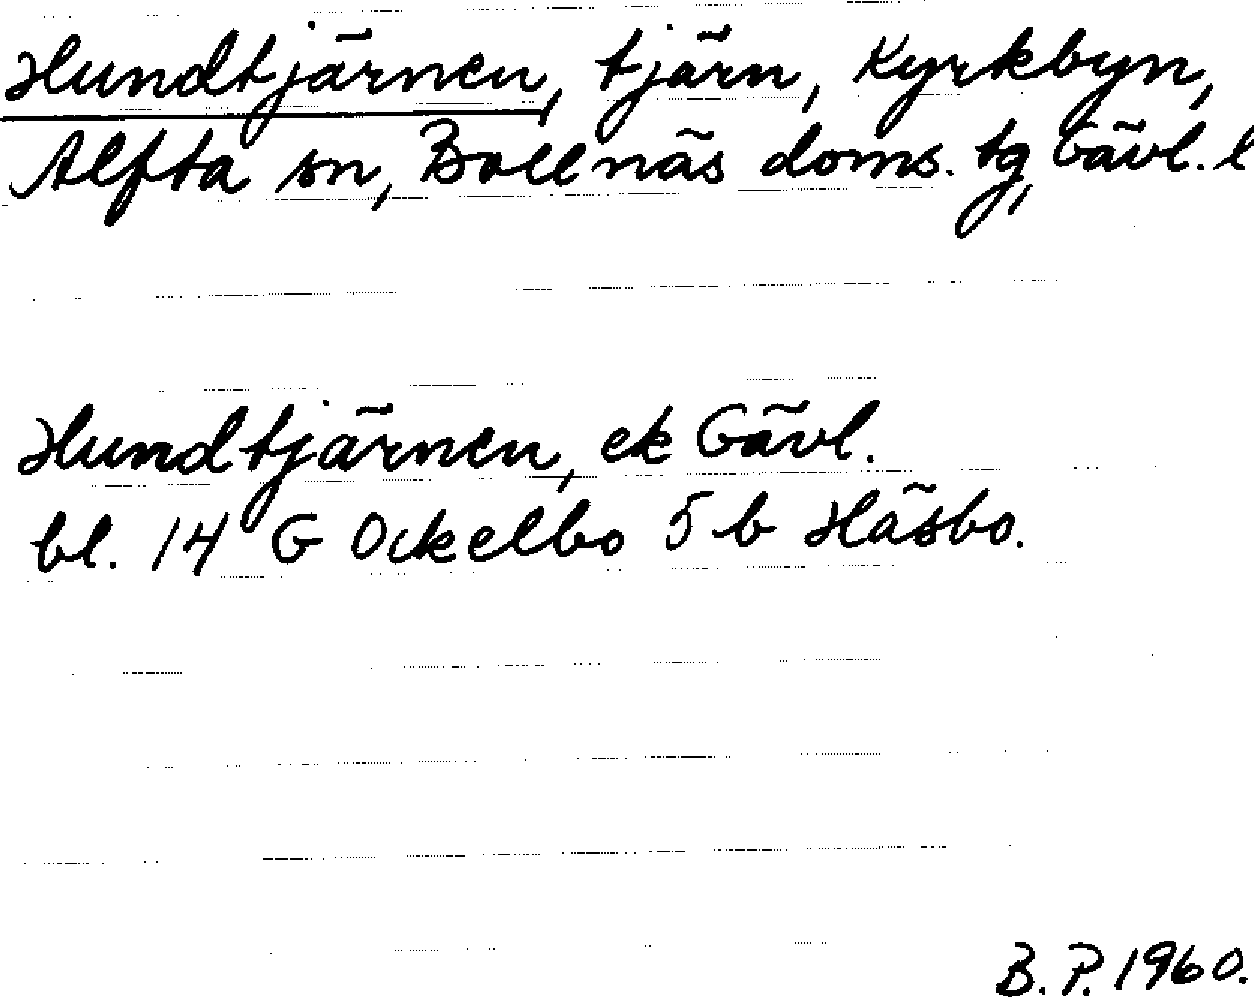 Hundtjärnen, tjärn, Kyrkbyn,
Alfta sn, Bollnäs doms. tg, Gävl. l
Hundtjärnen, ek Gävl.
bl. 14 G Ockelbo 5 b Häsbo.
B. P. 1960.